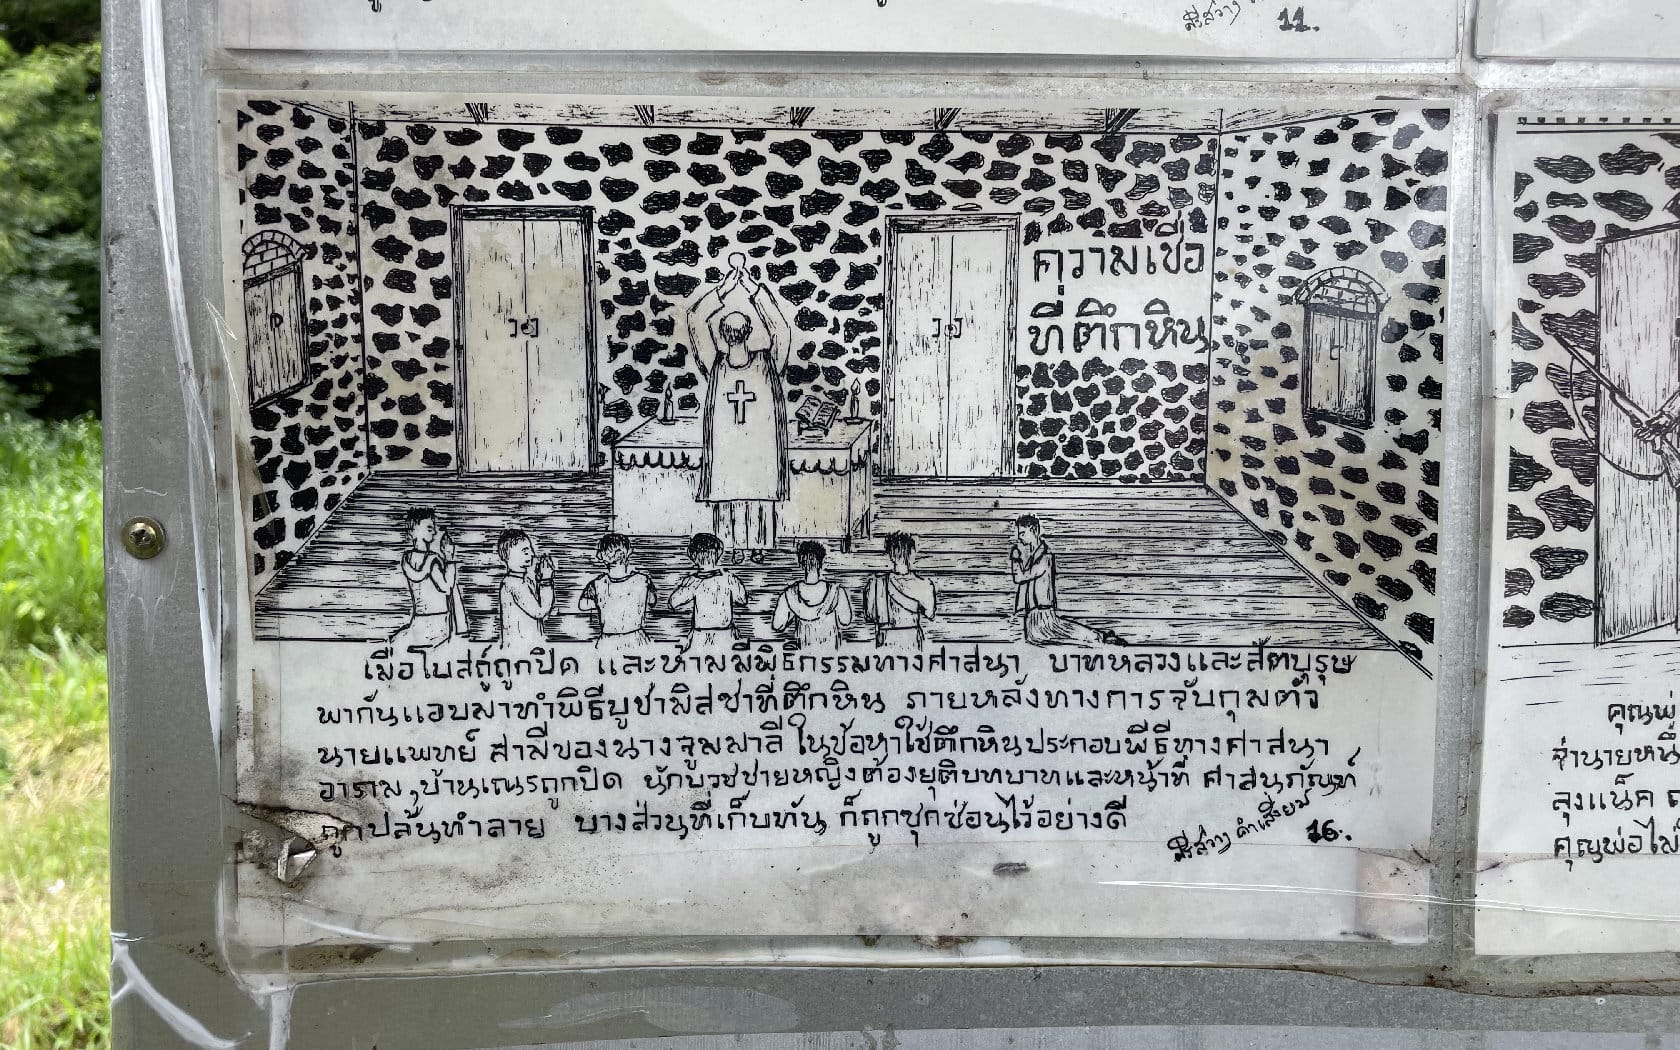 11.
ความเชื่อ
ที่ตึกหิน
เมื่อโบสถ์ถูกปิด และห้ามมีพิธีกรรมทางศาสนา บาทหลวงและสัตบุรุษ
พากันแอบมาทำพิธีบูชามิสซาที่ตึกหิน ภายหลังทางการจับกุมตัว
นายแพทย์ สามีของนางจูมมาลี ในข้อหาใช้ตึกหินประกอบพิธีทางศาสนา
อาราม,บ้านเณรถูกปิด นักบวชชายหญิงต้องยุติบทบาทและหน้าที่ ศาสนภัณฑ์
ถูกปล้นทำลาย บางส่วนที่เก็บทัน ก็ถูกซุกซ่อนไว้อย่างดี
16.
คุณพ่
ลุงแน็ค
คุณพ่อไม่